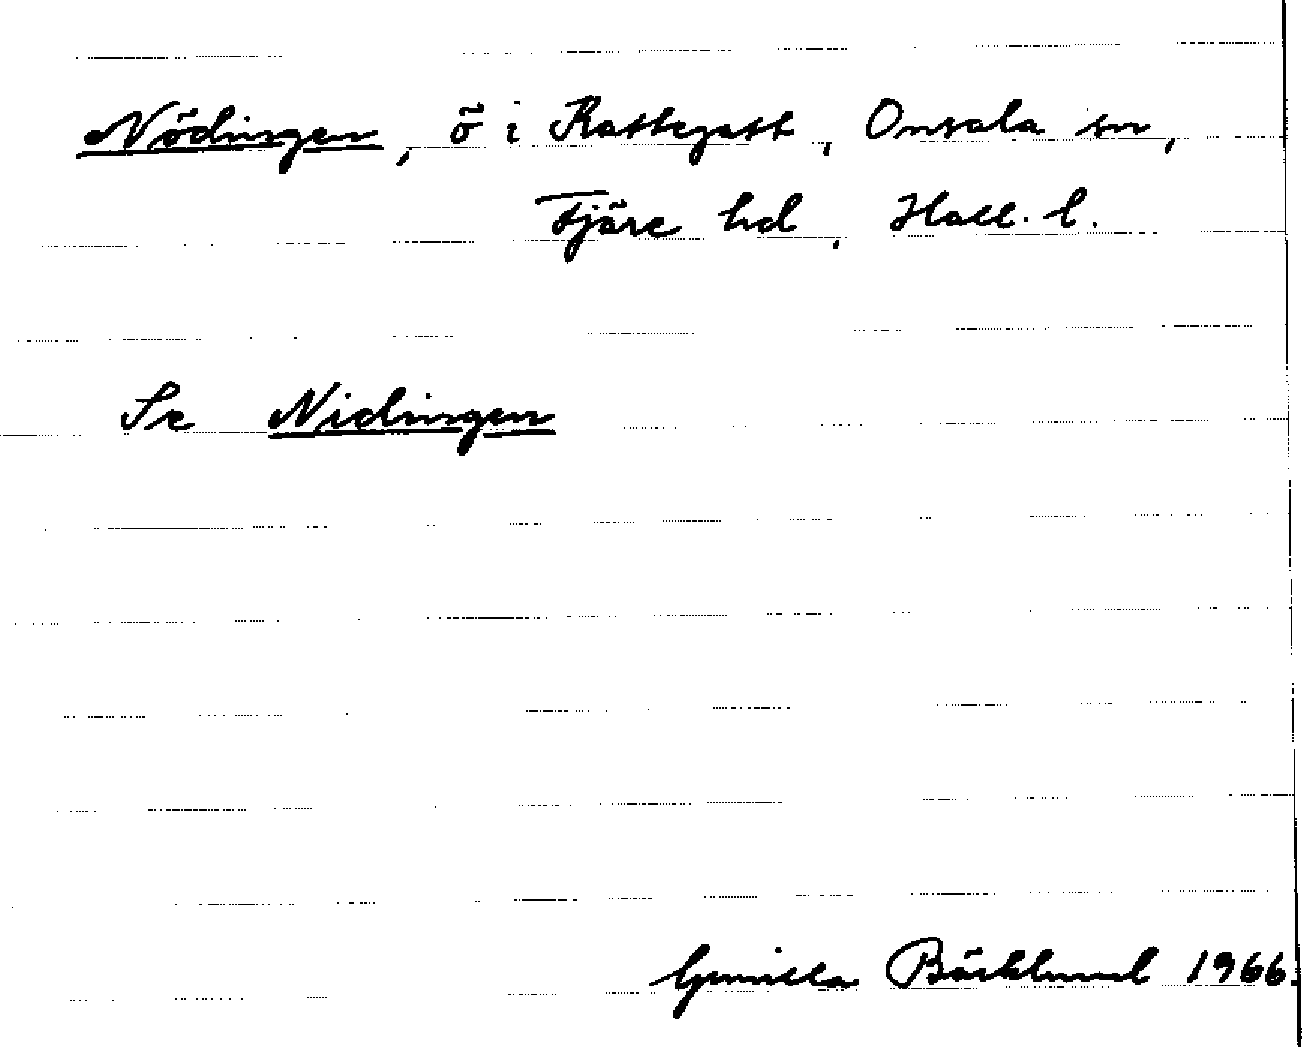 Nödingen, ö i Kattegatt, Onsala sn,
Fjäre hd, Hall. l.
Se Nidingen
Gunilla Bäcklund 1966.